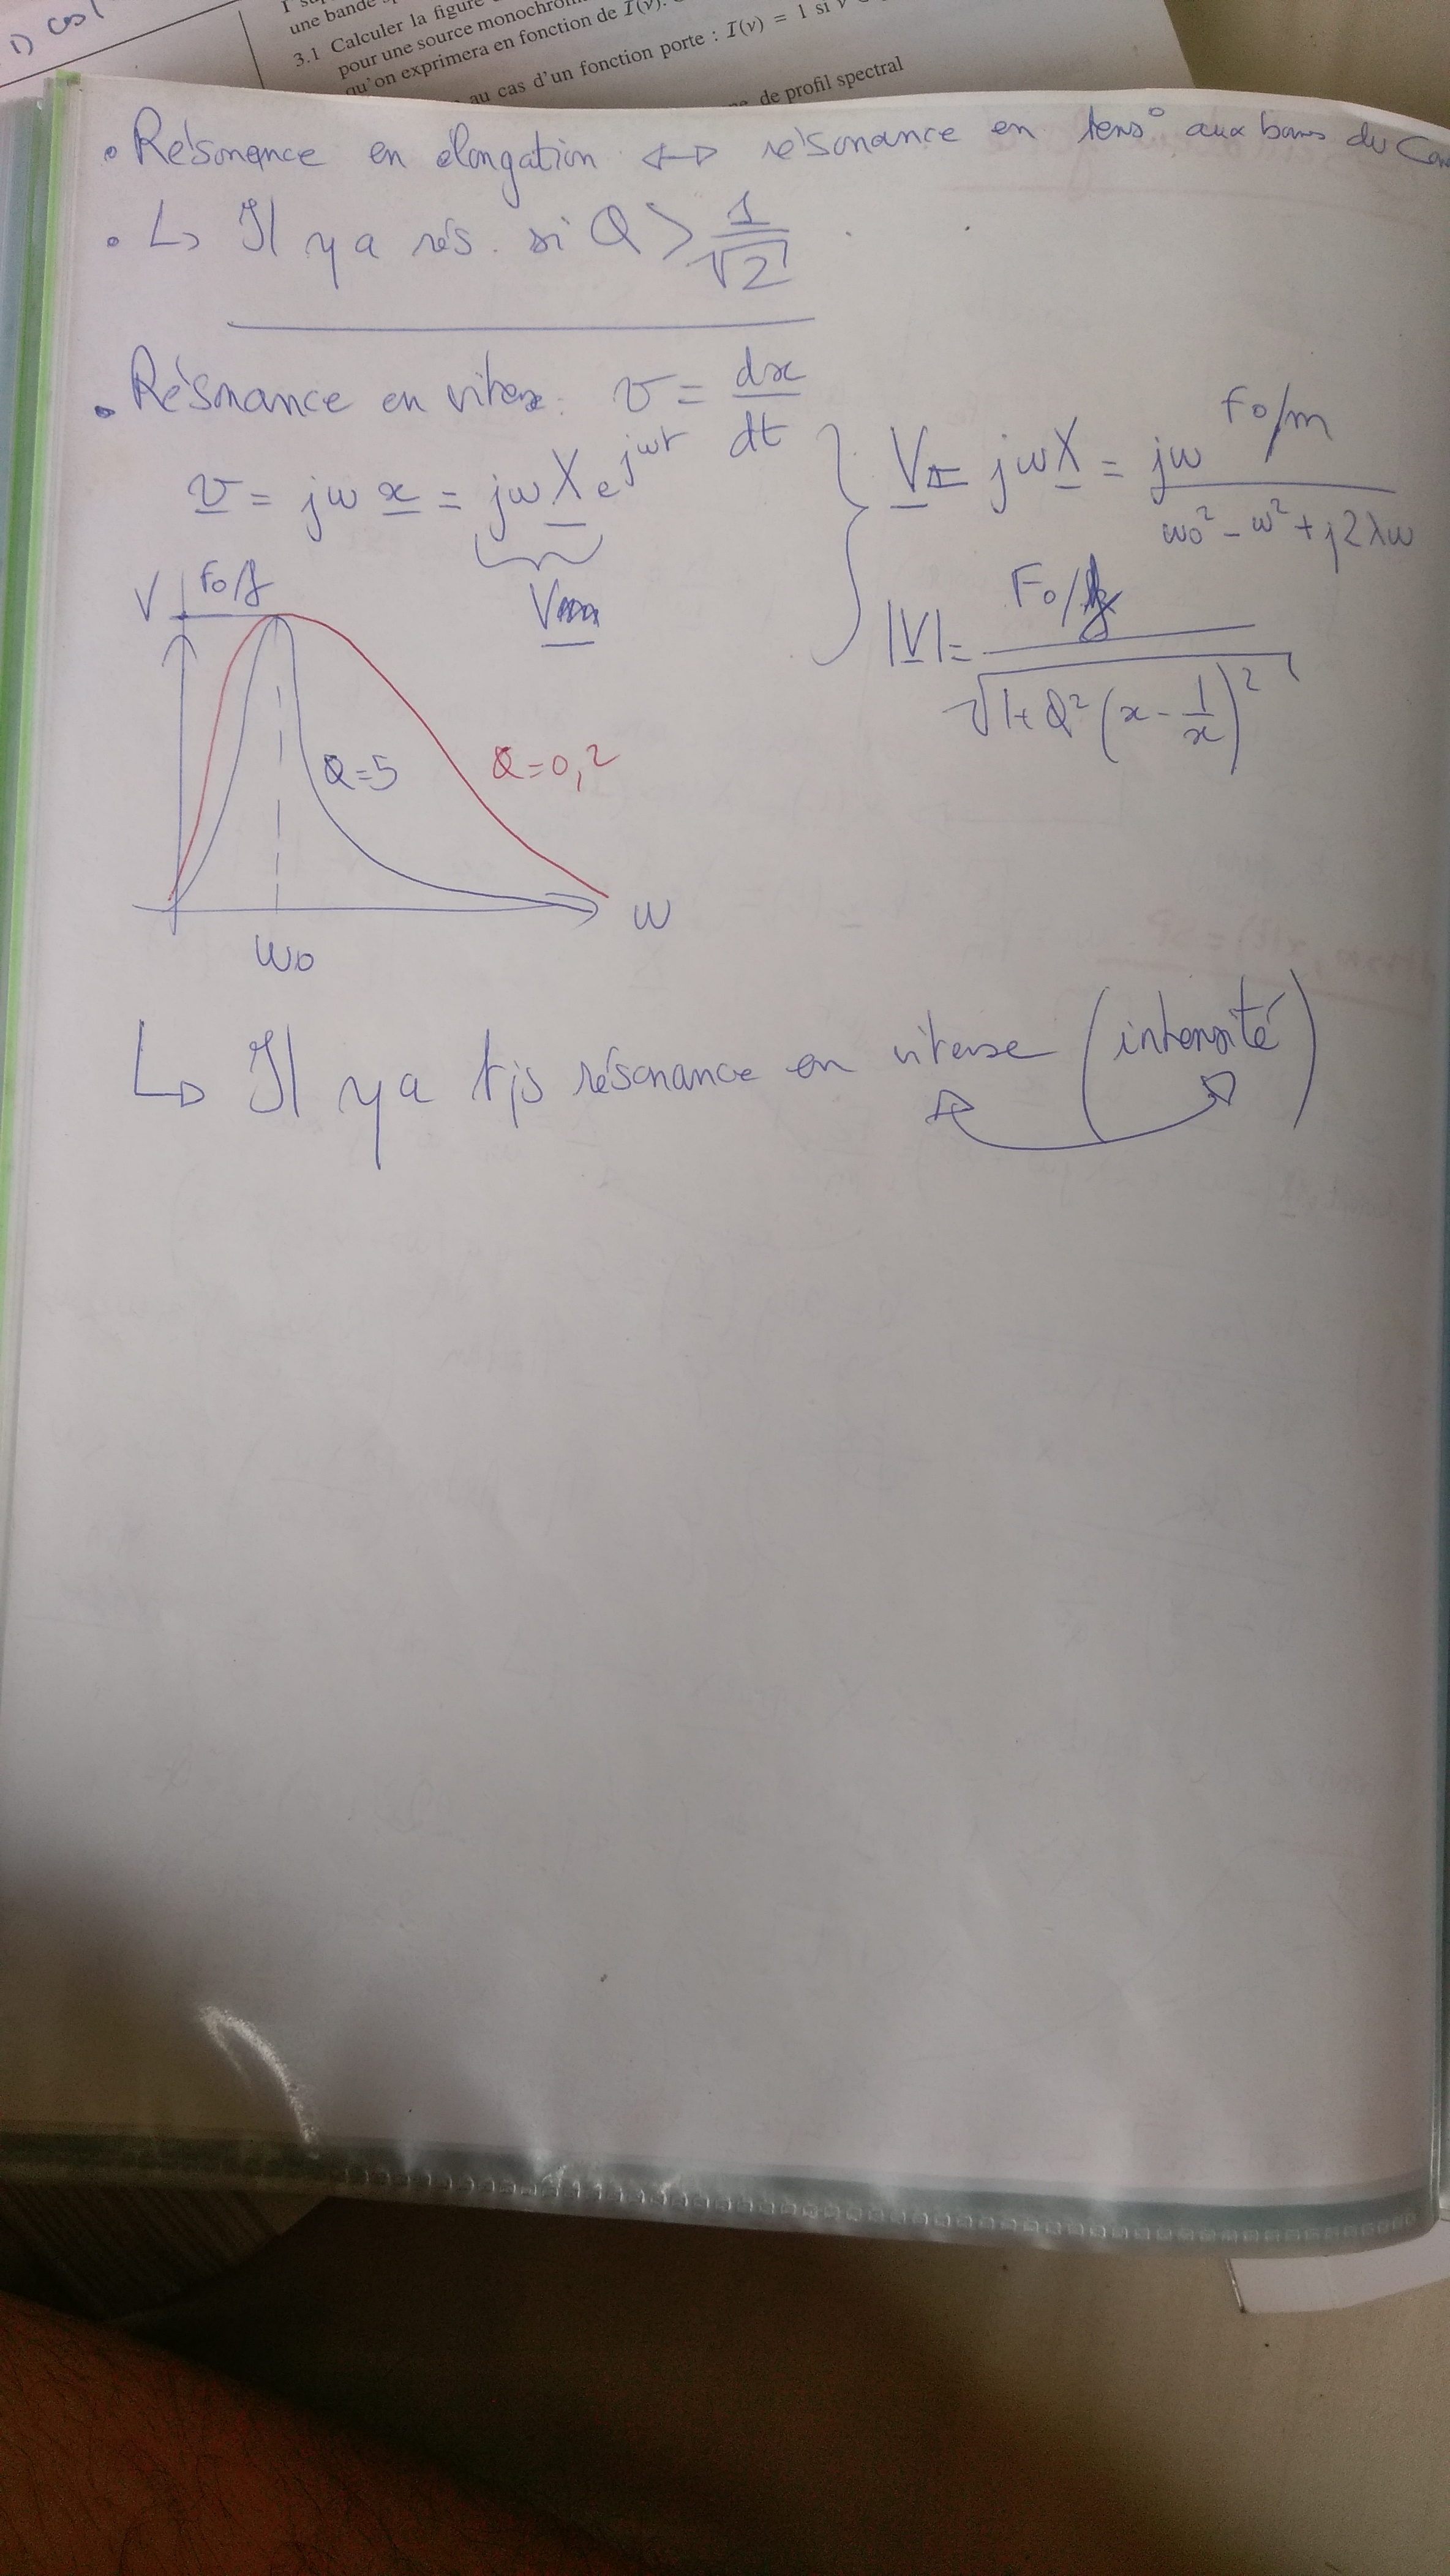 1) cos
une bande
3.1 Calculer la figure
pour une source monochrom
qu'on exprimera en fonction de I(ν).
au cas d'un fonction porte : I(ν) = 1 si ν
de profil spectral
• Résonance en élongation ↔ résonance en tens° aux bornes du Con
• ↳ Il y a rés. si Q > 1/√2
• Résonance en vitesse : v = dx/dt
v = jω x = jω X e^jωt
V
V = jω X = jω F0/m / (ω0² - ω² + j2λω)
|V| = F0/f / √(1 + Q² (x - 1/x)²)
V F0/f
Q=5 Q=0,2
ω
ω0
↳ Il y a tjs résonance en vitesse (intensité)